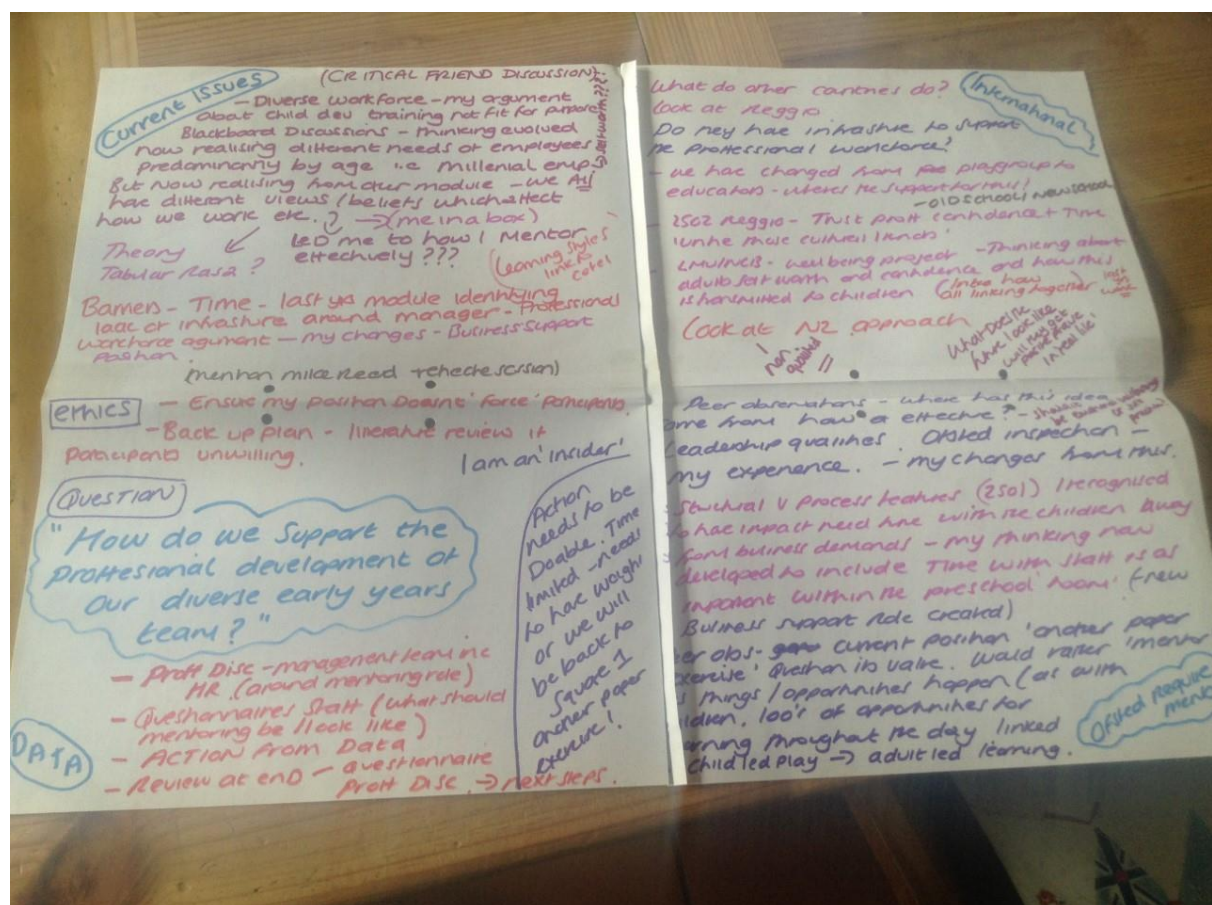 Current Issues
(CRITICAL FRIEND DISCUSSION)
- Diverse workforce - my argument
about child dev training not fit for purpose
Blackboard Discussions - thinking evolved
now realising different needs of employees
predominantly by age i.e millenial emp
But Now realising from our module - we All
have different views/beliefs which affect
how we work etc. ? → (me in a box)
LED me to how I Mentor
effectively ???
Theory
Tabular Rasa ?
(Learning styles
link to
Barriers - Time - last yrs module identifying
lack of infrastructure around manager - Professional
workforce argument - my changes - Business Support
Position
ethics
- Ensure my position Doesn't 'force' participants.
- Back up plan - literature review if
participants unwilling.
I am an 'insider'
QUESTION
"How do we Support the
Proffesional development of
our diverse early years
team?"
Action
needs to be
Doable. Time
limited - needs
to have weight
or we will
be back to
Square 1
another paper
exercise!
DATA
- Proff Disc - management team inc
HR (around mentoring role)
- Questionnaires Staff (what should
mentoring be/look like)
- ACTION From DATA
- Review at end - questionnaire
Proff Disc. → next steps.
International
What do other countries do?
Look at Reggio
Do they have infrastructure to support
the Proffessional workforce?
- we have changed from playgroup to
educators - wheres the support for this!
- OLD school / New school
2502 Reggio - Trust proff confidence + Time
- wellbeing project - Thinking about
adults self worth and confidence and how this
is transmitted to children
all linking together
Look at NZ approach
Peer observations - where has this idea
come from how effective? -
Leadership qualities. Ofsted inspection -
my experience. - my changes from this.
Structural V Process features (2501) I recognised
to have impact need time with the children away
from business demands - my thinking now
developed to include Time with staff is as
important within the 'preschool room' (new
Business support Role created)
obs - current position 'another paper
exercise' Question its value. Would rather 'mentor'
things/opportunities happen (as with
children, 100's of opportunities for
learning throughout the day linked
child led play → adult led learning.
Ofsted Require
ments